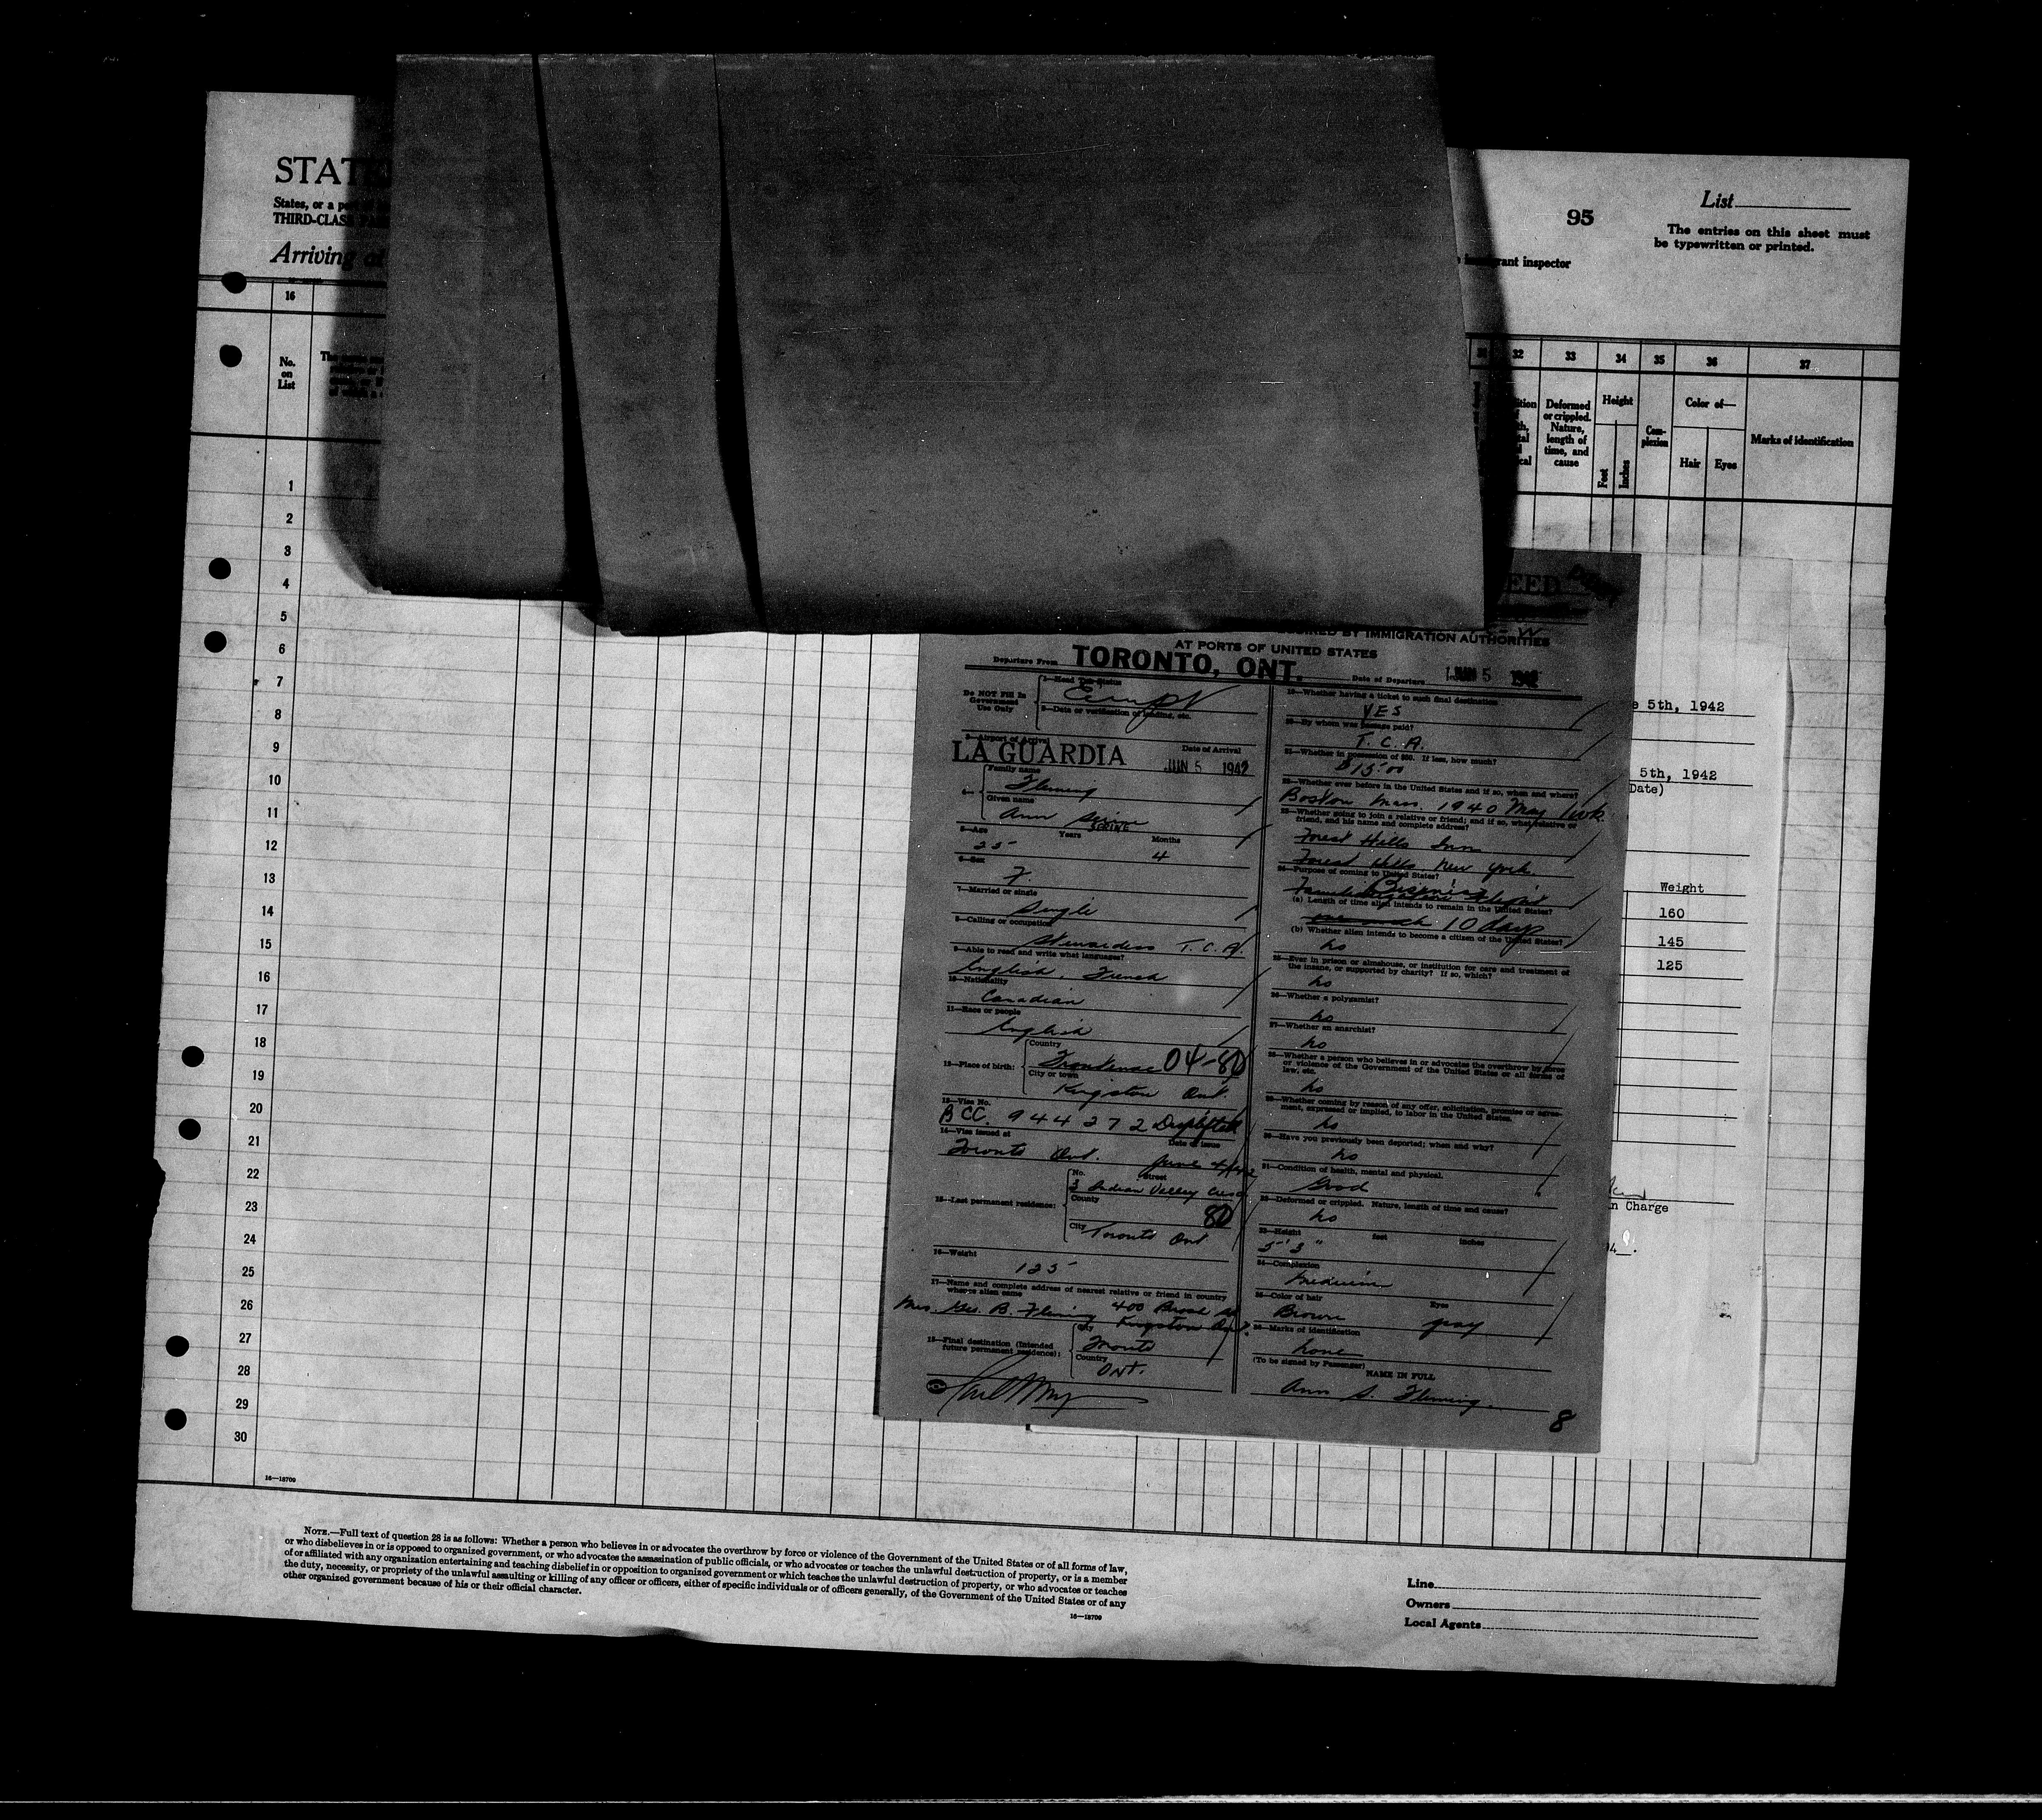 STATE
States, or a
THIRD-CLASS
Arriving at
95
List
The entries on this sheet must
be typewritten or printed.
immigrant inspector
16
32 33 34 35 36 37
No.
on
List
Deformed
or crippled.
Nature,
length of
time, and
cause
Height
Feet
Inches
Com-
plexion
Color of—
Hair
Eyes
Marks of identification
1
2
3
4
5
6
7
8
9
10
11
12
13
14
15
16
17
18
19
20
21
22
23
24
25
26
27
28
29
30
16—18709
EED
BY IMMIGRATION AUTHORITIES
AT PORTS OF UNITED STATES
Departure From TORONTO, ONT. Date of Departure JUN 5 1942
Do NOT Fill In
Government
Use Only
1—Head Tax Status
2—Date or verification of landing, etc.
3—Airport of Arrival
LA GUARDIA
Date of Arrival
JUN 5 1942
4—
Family name
Fleming
Given name
Ann
5—Age Years Months
25 4
6—Sex
F.
7—Married or single
Single
8—Calling or occupation
Stewardess T.C.A.
9—Able to read and write what languages?
English, French
10—Nationality
Canadian
11—Race or people
English
12—Place of birth:
Country
Frontenac 04-80
City or town
Kingston Ont.
13—Visa No.
BCC. 944272
14—Visa issued at Date of issue
Toronto Ont. June 4/42
15—Last permanent residence:
No. Street
3 Indian Valley Cres
County
80
City
Toronto Ont
16—Weight
125
17—Name and complete address of nearest relative or friend in country
whence alien came
Mrs. Geo. B. Fleming 400 Brock St
Kingston Ont.
18—Final destination (Intended
future permanent residence):
City
Toronto
Country
ONT.
19—Whether having a ticket to such final destination
YES
20—By whom was passage paid?
T. C. A.
21—Whether in possession of $50. If less, how much?
$15.00
22—Whether ever before in the United States and if so, when and where?
Boston Mass. 1940 May 1 wk.
23—Whether going to join a relative or friend; and if so, what relative or
friend, and his name and complete address?
Forest Hills Inn
Forest Hills New York.
24—Purpose of coming to United States?
Business
(a) Length of time alien intends to remain in the United States?
10 days
(b) Whether alien intends to become a citizen of the United States?
no
25—Ever in prison or almshouse, or institution for care and treatment of
the insane, or supported by charity? If so, which?
no
26—Whether a polygamist?
no
27—Whether an anarchist?
no
28—Whether a person who believes in or advocates the overthrow by force
or violence of the Government of the United States or all forms of
law, etc.
no
29—Whether coming by reason of any offer, solicitation, promise or agree-
ment, expressed or implied, to labor in the United States.
no
30—Have you previously been deported; when and why?
no
31—Condition of health, mental and physical.
Good
32—Deformed or crippled. Nature, length of time and cause?
no
33—Height feet inches
5' 3"
34—Complexion
medium
35—Color of hair Eyes
Brown gray
36—Marks of identification
none
(To be signed by Passenger)
NAME IN FULL
Ann S. Fleming.
8
5th, 1942
5th, 1942
Date)
Weight
160
145
125
n Charge
NOTE.—Full text of question 28 is as follows: Whether a person who believes in or advocates the overthrow by force or violence of the Government of the United States or of all forms of law,
or who disbelieves in or is opposed to organized government, or who advocates the assassination of public officials, or who advocates or teaches the unlawful destruction of property, or is a member
of or affiliated with any organization entertaining and teaching disbelief in or opposition to organized government or which teaches the unlawful destruction of property, or who advocates or teaches
the duty, necessity, or propriety of the unlawful assaulting or killing of any officer or officers, either of specific individuals or of officers generally, of the Government of the United States or of any
other organized government because of his or their official character.
16—18709
Line
Owners
Local Agents